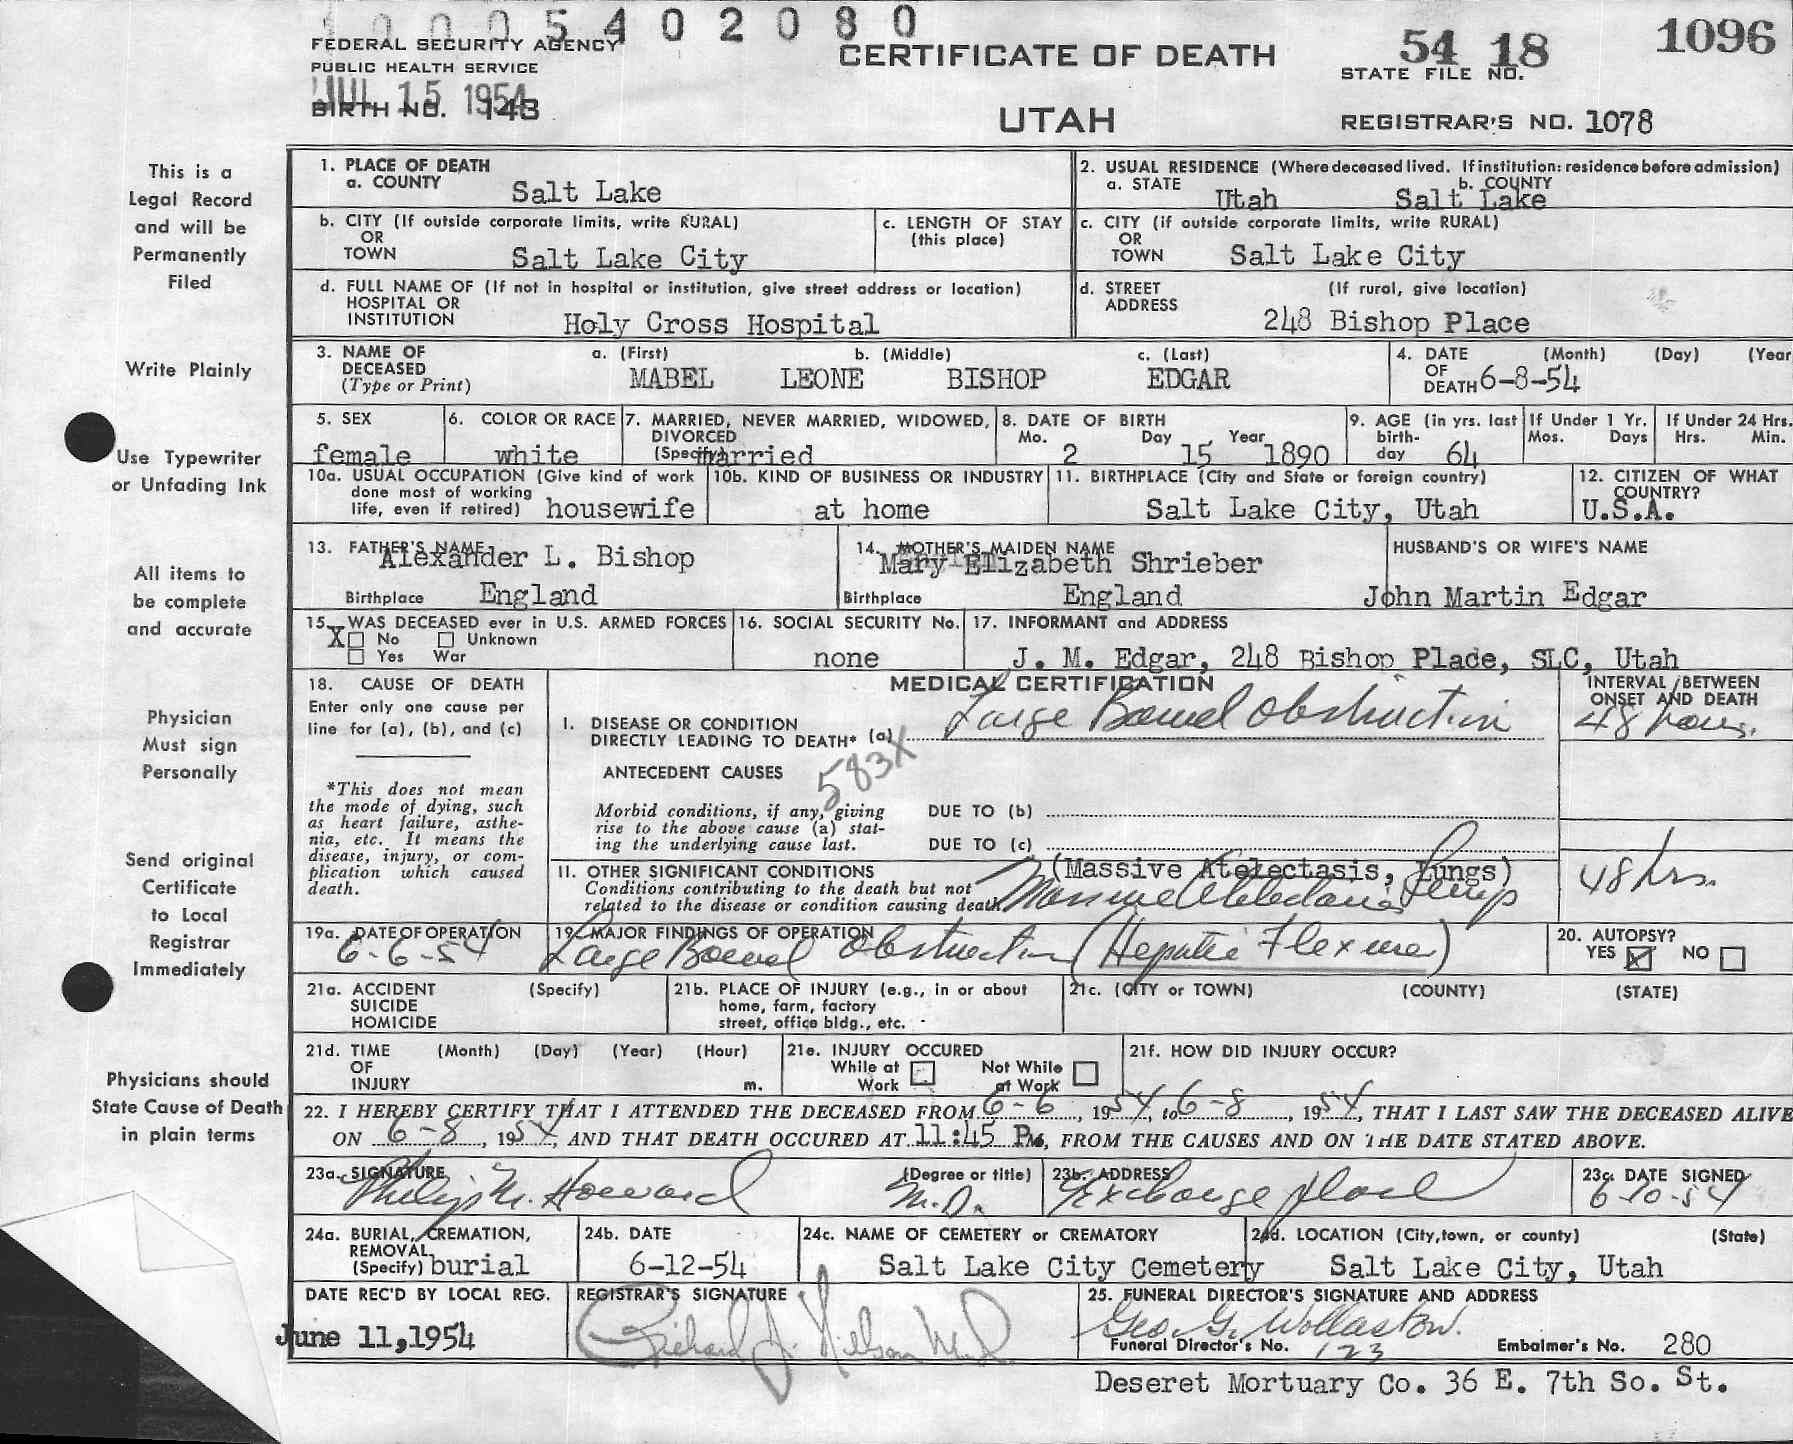 10005402080
FEDERAL SECURITY AGENCY
PUBLIC HEALTH SERVICE
JUL 15 1954
BIRTH NO. 143
CERTIFICATE OF DEATH
UTAH
54 18 1096
STATE FILE NO.
REGISTRAR'S NO. 1078
This is a
Legal Record
and will be
Permanently
Filed
Write Plainly
Use Typewriter
or Unfading Ink
All items to
be complete
and accurate
Physician
Must sign
Personally
Send original
Certificate
to Local
Registrar
Immediately
Physicians should
State Cause of Death
in plain terms
1. PLACE OF DEATH
a. COUNTY Salt Lake
2. USUAL RESIDENCE (Where deceased lived. If institution: residence before admission)
a. STATE Utah b. COUNTY Salt Lake
b. CITY (If outside corporate limits, write RURAL)
OR
TOWN Salt Lake City
c. LENGTH OF STAY
(this place)
c. CITY (if outside corporate limits, write RURAL)
OR
TOWN Salt Lake City
d. FULL NAME OF (If not in hospital or institution, give street address or location)
HOSPITAL OR
INSTITUTION Holy Cross Hospital
d. STREET (If rural, give location)
ADDRESS 248 Bishop Place
3. NAME OF DECEASED
(Type or Print)
a. (First) b. (Middle) c. (Last)
MABEL LEONE BISHOP EDGAR
4. DATE (Month) (Day) (Year
OF
DEATH 6-8-54
5. SEX
female
6. COLOR OR RACE
white
7. MARRIED, NEVER MARRIED, WIDOWED,
DIVORCED
(Specify) married
8. DATE OF BIRTH
Mo. Day Year
2 15 1890
9. AGE (in yrs. last
birth-
day 64
If Under 1 Yr.
Mos. Days
If Under 24 Hrs.
Hrs. Min.
10a. USUAL OCCUPATION (Give kind of work
done most of working
life, even if retired) housewife
10b. KIND OF BUSINESS OR INDUSTRY
at home
11. BIRTHPLACE (City and State or foreign country)
Salt Lake City, Utah
12. CITIZEN OF WHAT
COUNTRY?
U.S.A.
13. FATHER'S NAME
Alexander L. Bishop
Birthplace England
14. MOTHER'S MAIDEN NAME
Mary Elizabeth Shrieber
Birthplace England
HUSBAND'S OR WIFE'S NAME
John Martin Edgar
15. WAS DECEASED ever in U.S. ARMED FORCES
X No Unknown
Yes War
16. SOCIAL SECURITY No.
none
17. INFORMANT and ADDRESS
J. M. Edgar, 248 Bishop Plade, SLC, Utah
18. CAUSE OF DEATH
Enter only one cause per
line for (a), (b), and (c)
*This does not mean
the mode of dying, such
as heart failure, asthe-
nia, etc. It means the
disease, injury, or com-
plication which caused
death.
MEDICAL CERTIFICATION
I. DISEASE OR CONDITION
DIRECTLY LEADING TO DEATH* (a) Large Bowel Obstruction
INTERVAL BETWEEN
ONSET AND DEATH
48 hours.
ANTECEDENT CAUSES
583X
Morbid conditions, if any, giving
rise to the above cause (a) stat-
ing the underlying cause last.
DUE TO (b)
DUE TO (c)
11. OTHER SIGNIFICANT CONDITIONS
Conditions contributing to the death but not
related to the disease or condition causing death.
(Massive Atelectasis, Lungs)
Massive Atelectasis Lungs
48 hrs.
19a. DATE OF OPERATION
6-6-54
19. MAJOR FINDINGS OF OPERATION
Large Bowel Obstruction (Hepatic Flexure)
20. AUTOPSY?
YES X NO
21a. ACCIDENT (Specify)
SUICIDE
HOMICIDE
21b. PLACE OF INJURY (e.g., in or about
home, farm, factory
street, office bldg., etc.
21c. (CITY or TOWN) (COUNTY) (STATE)
21d. TIME (Month) (Day) (Year) (Hour)
OF
INJURY m.
21e. INJURY OCCURED
While at Work Not While at Work
21f. HOW DID INJURY OCCUR?
22. I HEREBY CERTIFY THAT I ATTENDED THE DECEASED FROM 6-6, 1954, to 6-8, 1954, THAT I LAST SAW THE DECEASED ALIVE
ON 6-8, 1954, AND THAT DEATH OCCURED AT 11:45 P.M., FROM THE CAUSES AND ON THE DATE STATED ABOVE.
23a. SIGNATURE (Degree or title)
Philip M. Howard M.D.
23b. ADDRESS
Exchange place
23c. DATE SIGNED
6-10-54
24a. BURIAL, CREMATION,
REMOVAL
(Specify) burial
24b. DATE
6-12-54
24c. NAME OF CEMETERY or CREMATORY
Salt Lake City Cemetery
24d. LOCATION (City, town, or county) (State)
Salt Lake City, Utah
DATE REC'D BY LOCAL REG.
June 11, 1954
REGISTRAR'S SIGNATURE
Richard J. Nilson M.D.
25. FUNERAL DIRECTOR'S SIGNATURE AND ADDRESS
Geo. G. Wollaston.
Funeral Director's No. 123 Embalmer's No. 280
Deseret Mortuary Co. 36 E. 7th So. St.